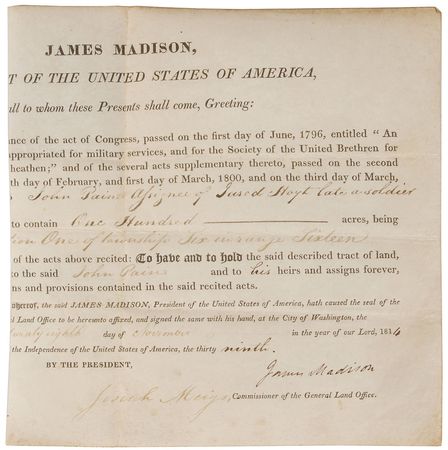 JAMES MADISON,
T OF THE UNITED STATES OF AMERICA,
all to whom these Presents shall come, Greeting:
ance of the act of Congress, passed on the first day of June, 1796, entitled “ An
appropriated for military services, and for the Society of the United Brethren for
heathen;” and of the several acts supplementary thereto, passed on the second
th day of February, and first day of March, 1800, and on the third day of March,
John Pain Assignee of Jared Hoyt late a soldier
to contain One Hundred acres, being
ion One of township Six in range Sixteen
of the acts above recited: To have and to hold the said described tract of land,
to the said John Pain and to his heirs and assigns forever,
ns and provisions contained in the said recited acts.
whereof, the said JAMES MADISON, President of the United States of America, hath caused the seal of the
l Land Office to be hereunto affixed, and signed the same with his hand, at the City of Washington, the
day of November in the year of our Lord, 1814
the Independence of the United States of America, the thirty ninth.
BY THE PRESIDENT,
James Madison
Josiah Meigs, Commissioner of the General Land Office.